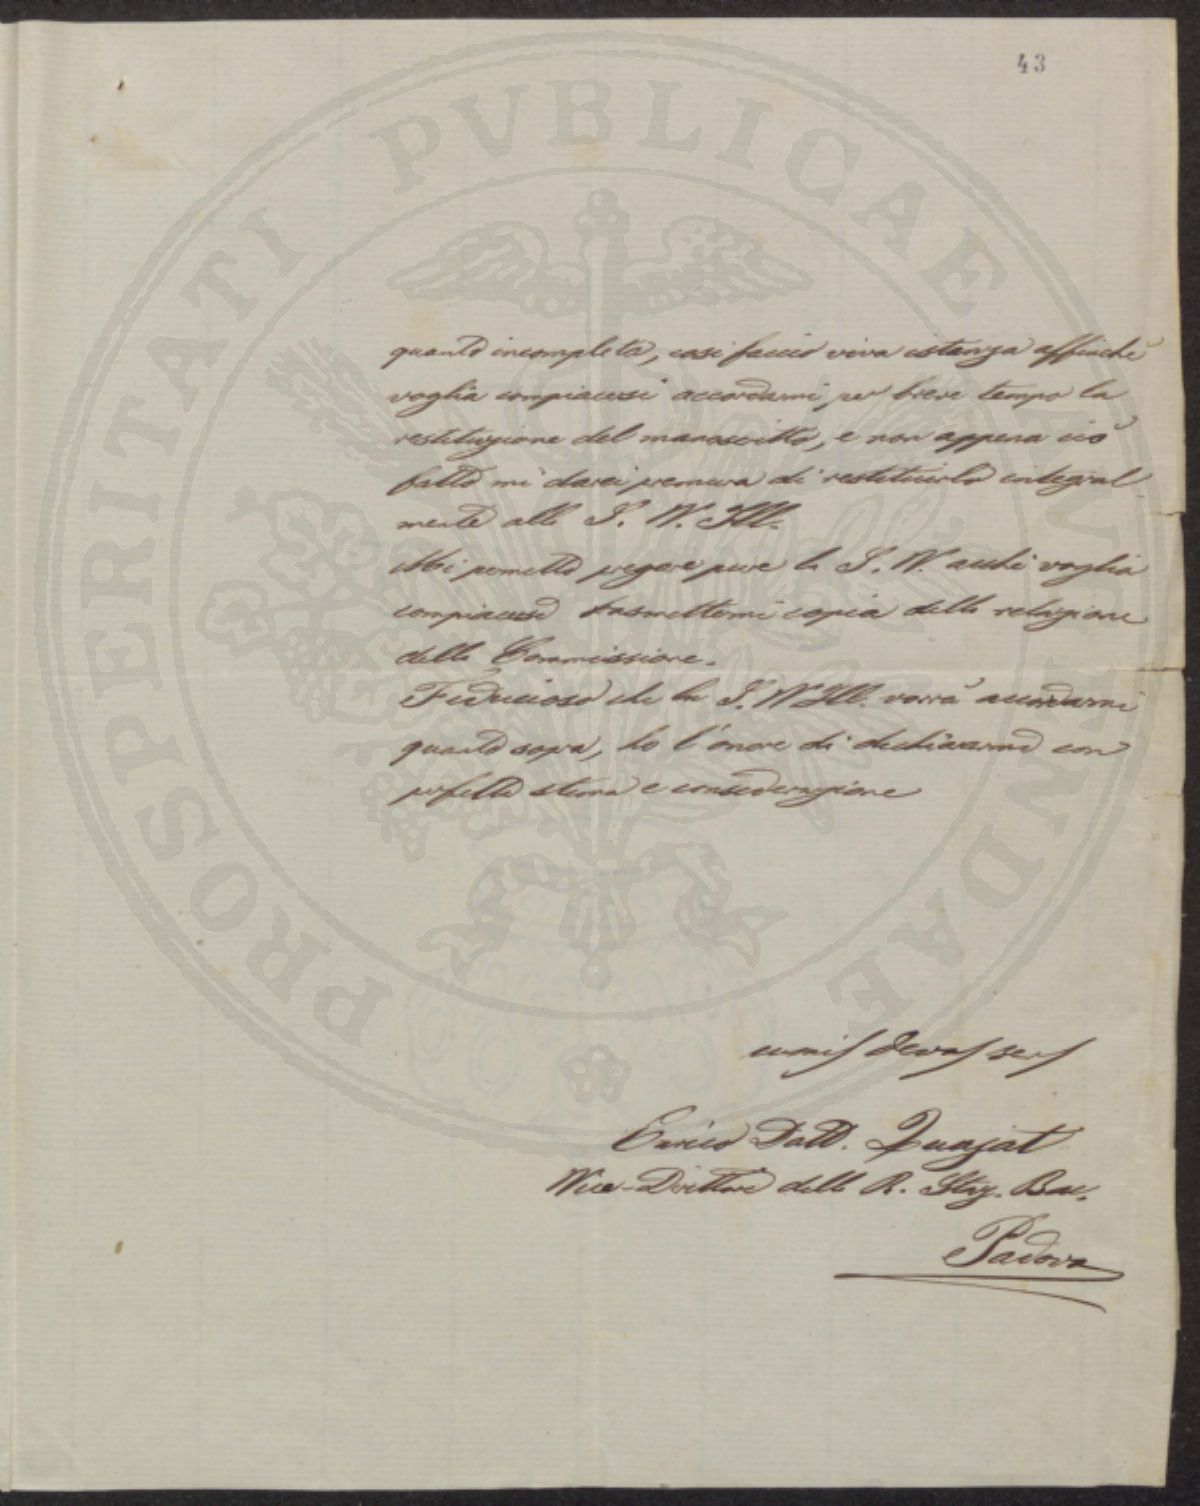 43
PROSPERITATI PVBLICAE AVGENDAE
quanto incompleta, così faccio viva istanza affinchè
voglia compiacersi accordarmi per breve tempo la
restituzione del manoscritto, e non appena ciò
fatto mi darei premura di restituirlo integral
mente alla S. V. Ill.
Mi permetto pregare pure la S. V. acchè voglia
compiacersi trasmettermi copia della relazione
della Commissione.
Fiducioso che la S. V. Ill. vorrà accordarmi
quanto sopra, ho l'onore di dichiararmi con
perfetta stima e considerazione
Enrico Dott. Quajat
Vice-Direttore della R. Staz. Bac.
Padova